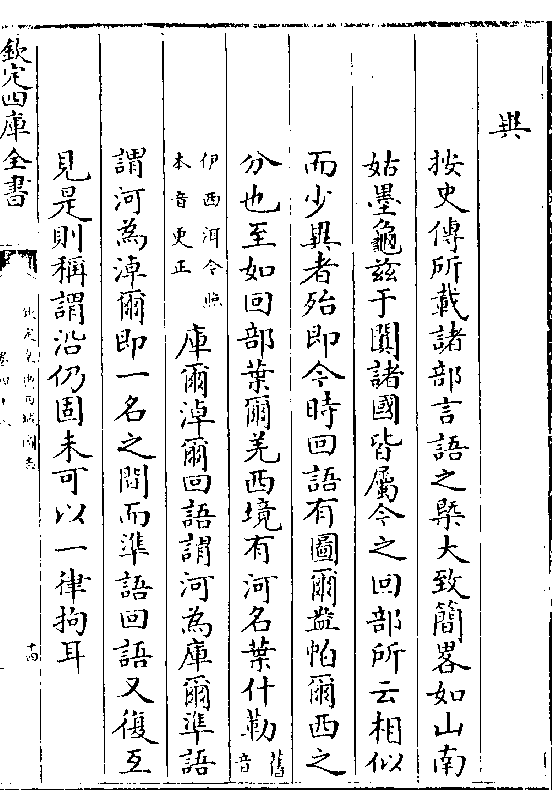 異
按史傳所載諸部言語之槩大致簡畧如山南
姑墨龜兹于闐諸國皆屬今之回部所云相似
而少異者殆即今時回語有圖爾盤帕爾西之
分也至如回部葉爾羌西境有河名葉什勒舊音
伊西洱今照本音更正庫爾淖爾回語謂河為庫爾準語
謂河為淖爾即一名之間而準語回語又復互
見是則稱謂沿仍固未可以一律拘耳
欽定四庫全書
欽定皇輿西域圖志